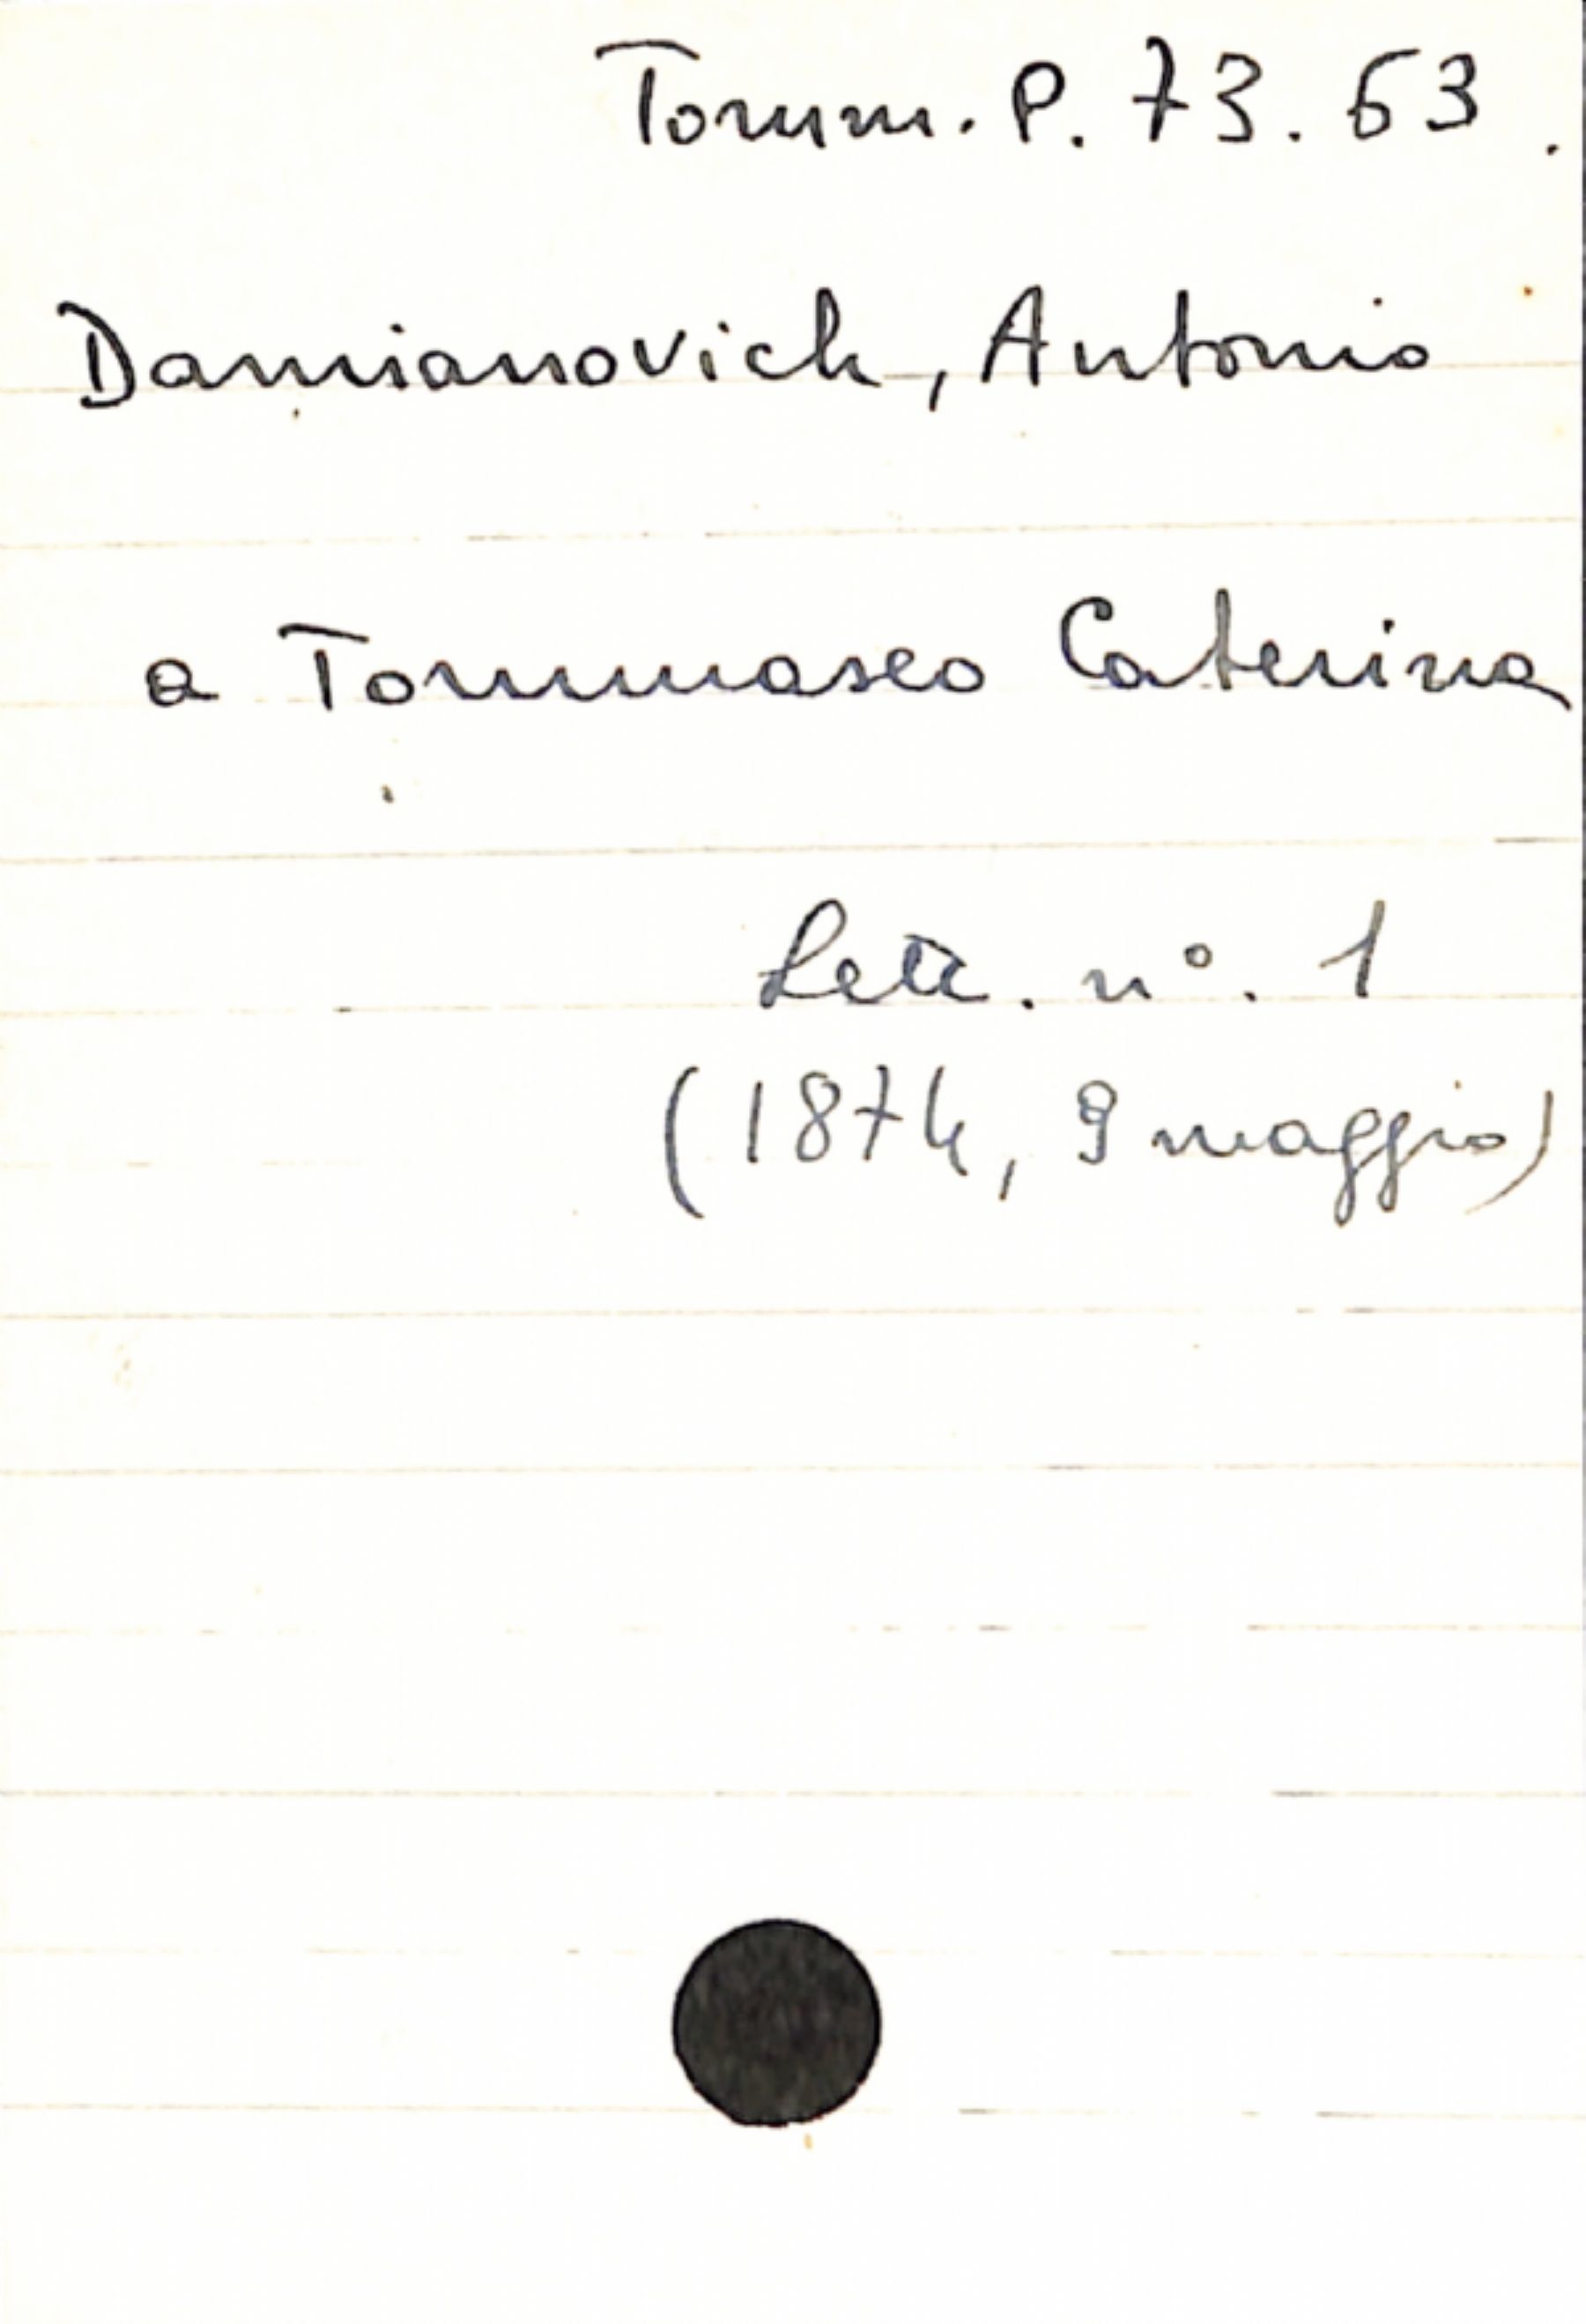 Tomm. P. 73. 63.
Damianovich, Antonio
a Tommaseo Caterina
Lett. n°. 1
(1874, 9 maggio)